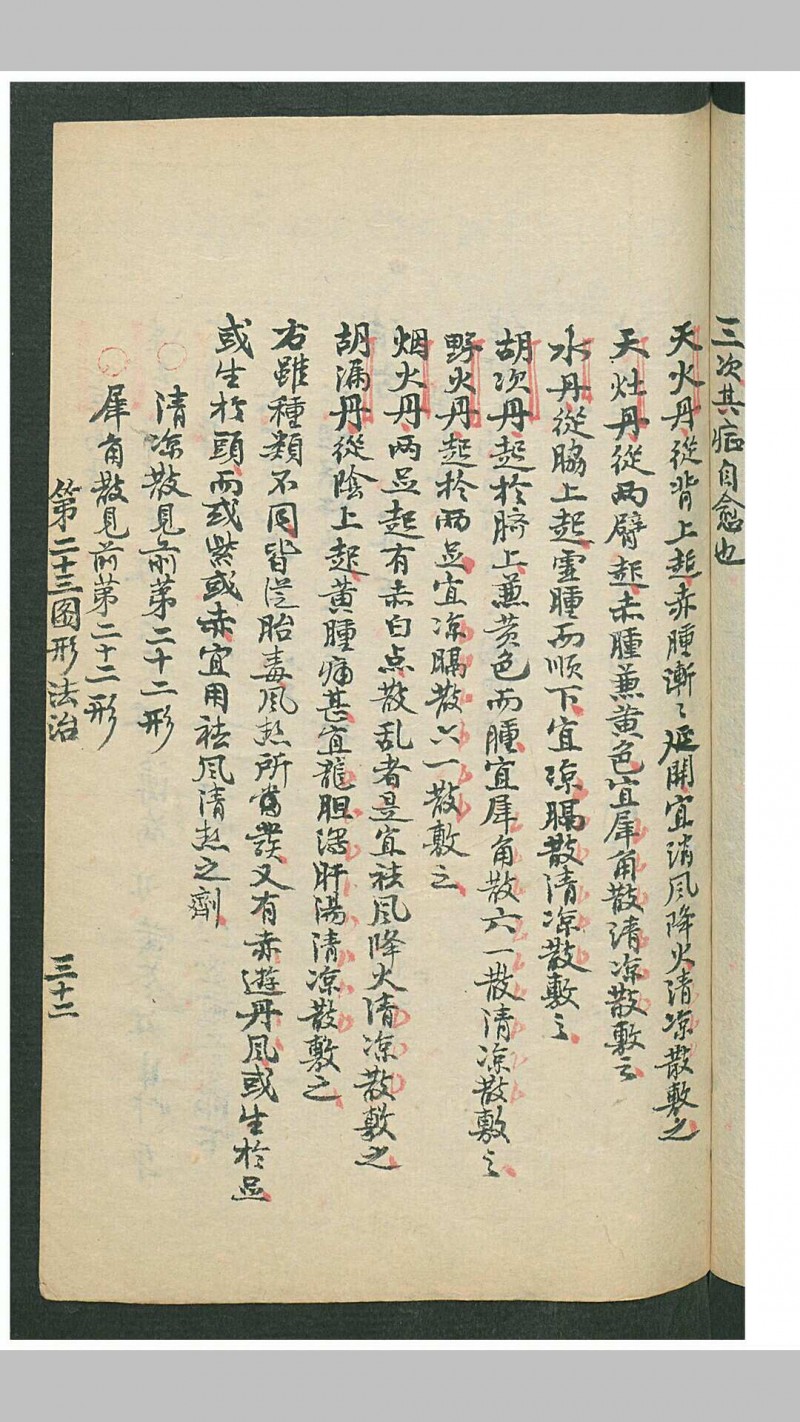 三次其症自愈也
天火丹從背上起赤腫漸〻延開宜消風降火清凉散敷之
天灶丹從兩臂起赤腫蒹黄色宜犀角散清凉散敷之
水丹從脇上起虚腫而順下宜凉膈散清凉散敷之
胡次丹起扵臍上蒹黄色而腫宜犀角散六一散清凉散敷之
野火丹起扵兩足宜凉膈散六一散敷之
烟火丹兩足起有赤白点散乱者是宜袪風降火清凉散敷之
胡漏丹從陰上起黄腫痛甚宜龍胆瀉肝湯清凉散敷之
右雖種類不同皆從胎毒風热所當發又有赤遊丹風或生扵足
或生扵頭而或紫或赤宜用袪風清热之劑
○清凉散見前苐二十二形
○犀角散見前苐二十二形
第二十三图形法治
三十二